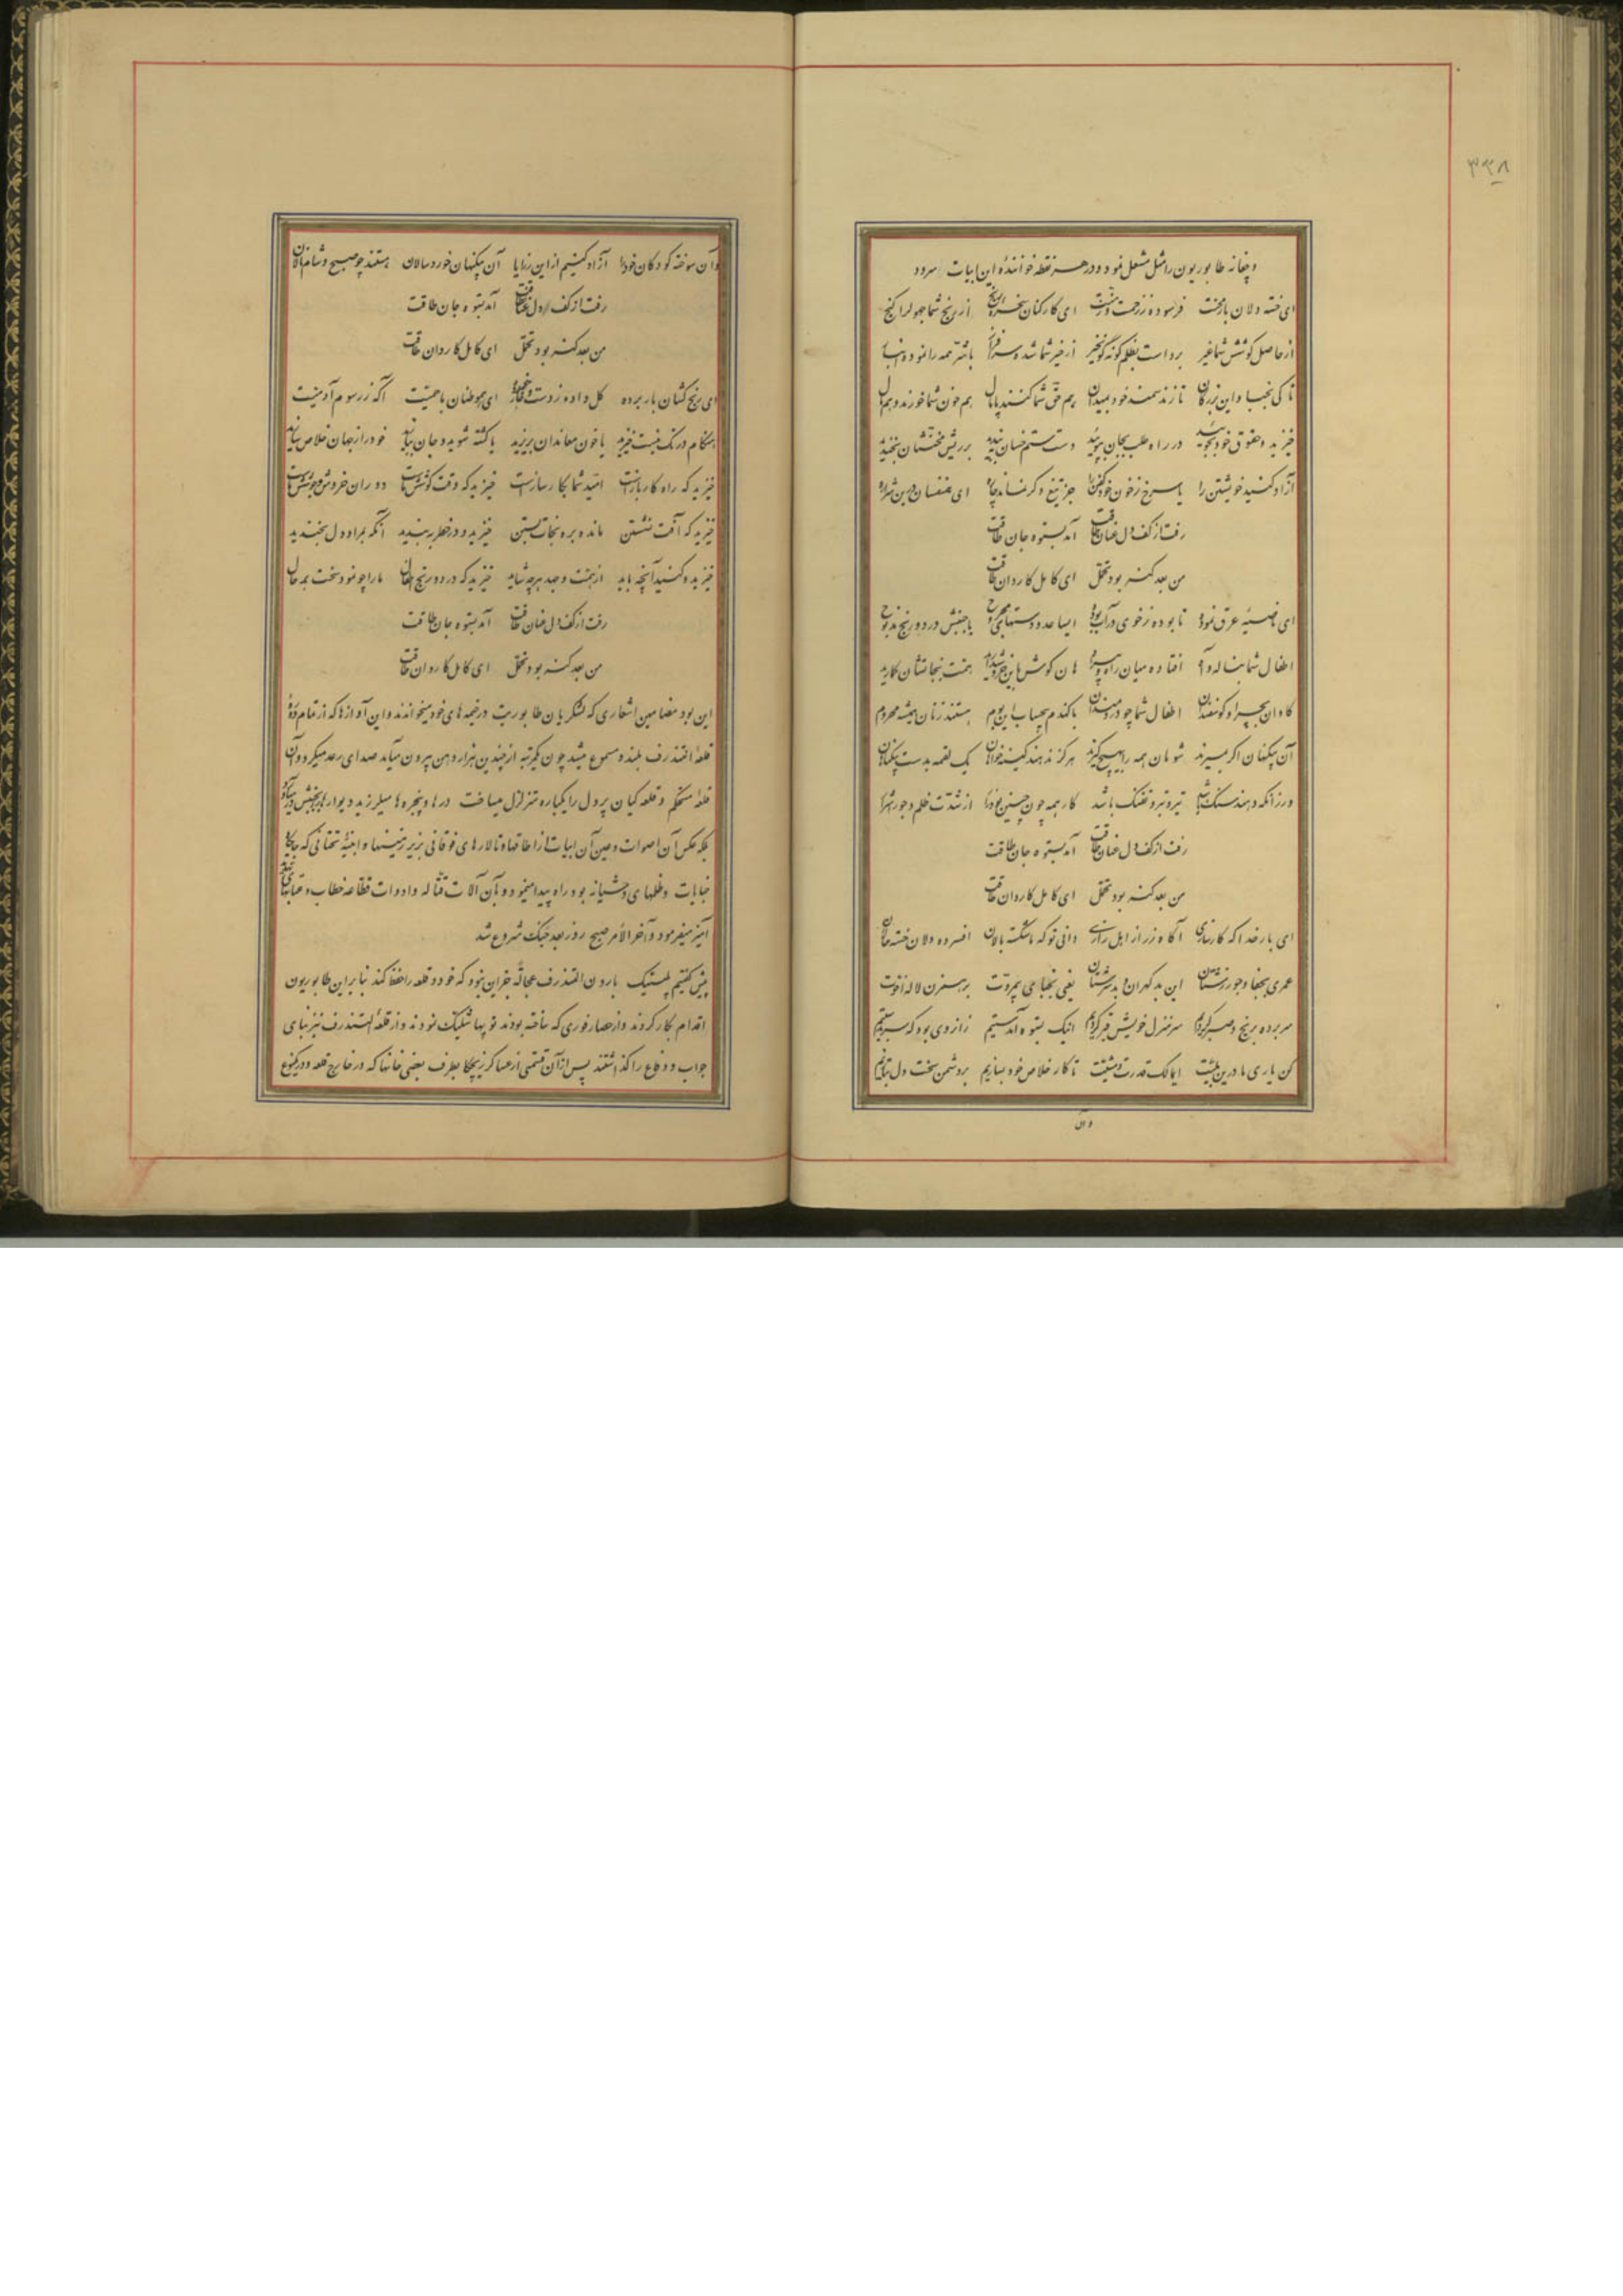 ۳۳۸
و چخانه طابوریون را مثل مشعل نمود و در هر نقطه خوانندهٔ این ابیات سرود
ای خسته دلان با محنت فرسوده ز زحمت و مشقت ای کارکنان از رنج شما جهولرا گنج
از حاصل کوشش شما غیر برداست بظلم گونه گون خیر از خیر شما شده سرافراز باشد همه را نمود
تا کی نجبا و این بزرگان تازند سمند خود بمیدان هم حق شما کنند پامال هم خون شما خورند و هم مال
خیزید و حقوق خود بجوئید در راه طلب بجان بپوئید دست ستم خسان ببندید بر ریش محنتشان بخندید
آزاد کنید خویشتن را یا سرخ ز خون خود کفن را جز تیغ دگر نمانده چاره ای همنفسان درین
رفت از کف دل عنان طاقت آمد بستوه جان طاقت
من بعد کنم بود تحمل ای کامل کاردان طاقت
ای ناصیه عرق نموده تا بوده ز خوی در آب بوده ایا ساعد و دستهای مجروح با جنبش درد و رنج مذبوح
اطفال شما بناله و آه افتاده میان راه و بیراه هان گوش باین خروش دارید همت بنجاتشان گمارید
گاوان بچرا و گوسفندان اطفال شما چو دردمندان با گندم بیحساب این بوم هستند زنان همیشه محروم
آن بیگنهان اگر بمیرند شومان همه را بهیچ گیرند هرگز ندهند کینه خواهان یک لقمه بدست بیگناهان
ورزانکه دهند سنگ باشد تیر و تبر و تفنگ باشد کار همه چون چنین بود از شدت ظلم و جور
رفت از کف دل عنان طاقت آمد بستوه جان طاقت
من بعد کنم بود تحمل ای کامل کاردان طاقت
ای بار خدا که کارسازی آگاه ز راز اهل رازی دانی تو که ما شکسته بالان افسرده دلان خسته حالان
عمری بجفا و جور زشتان این بدگهران بدسرشتان یعنی نجبای بیمروت بر همزن لاله اخوت
سر برده برنج و صبر کردیم سر منزل خویش قبر کردیم اینک بستوه آمدستیم زانروی بود که
کن یاری ما درین مشیت ای مالک قدرت و مشیت تا کار خلاص خود بسازیم بر دشمن سخت دل بتازیم
وآن
وآن سوخته کودکان خود را آزاد کنیم از این رزایا آن بیگنهان خوردسالان هستند چو صبح و شام نالان
رفت از کف دل عنان طاقت آمد بستوه جان طاقت
من بعد کنم بود تحمل ای کامل کاردان طاقت
ای رنج کشان بار برده گل داده ز دست و خار خورده ای هموطنان با حمیت آگه ز رسوم آدمیت
هنگام درنگ نیست خیزید یا خون معاندان بریزید یا کشته شوید و جان خود را ز جهان خلاص
خیزید که راه کار باز است امید شما بکار ساز است خیزید که وقت کوشش ماست دوران خروش و جوشش ماست
خیزید که آفت نشستن مانده بره نجات بستن خیزید و در خطر ببندید آنگه بمراد دل بخندید
خیزید و کنید آنچه باید از همت و جهد هرچه شاید خیزید که درد و رنج اطفال ما را چو نمود سخت بد حال
رفت از کف دل عنان طاقت آمد بستوه جان طاقت
من بعد کنم بود تحمل ای کامل کاردان طاقت
این بود مضامین اشعاری که لشکریان طابوریت در خیمه های خود میخواندند و این آوازها که از تمام
قلعهٔ التندرف بلند و مسموع میشد چون یکمرتبه از چندین هزار دهن بیرون میآمد صدای رعد میکرد و آن
قلعهٔ محکم و قلعه گیان پر دل را یکباره متزلزل میساخت درها و پنجره ها میلرزید و دیوارها بجنبش
بلکه عکس آن اصوات و عین آن ابیات از اطاقها و تالارهای فوقانی بزیر زمینها و ابنیهٔ تحتانی که
جنایات و ظلمهای وحشیانه بود راه پیدا مینمود و بآن آلات قتاله و ادوات قطاعه خطاب و عتابهای
آمیز میفرمود و آخرالأمر صبح روز بعد جنگ شروع شد
پیش گفتیم بارون التندرف عجالةً جز این نبود که خود و قلعه را حفظ کند بنابراین طابوریون
اقدام بکار کردند و از حصار فوری که ساخته بودند توپها شلیک نمودند و از قلعهٔ التندرف نیز بنای
جواب و دفاع را گذاشتند پس از آن قسمتی از عساکر بطرف بعضی خانها که در خارج قلعه و در